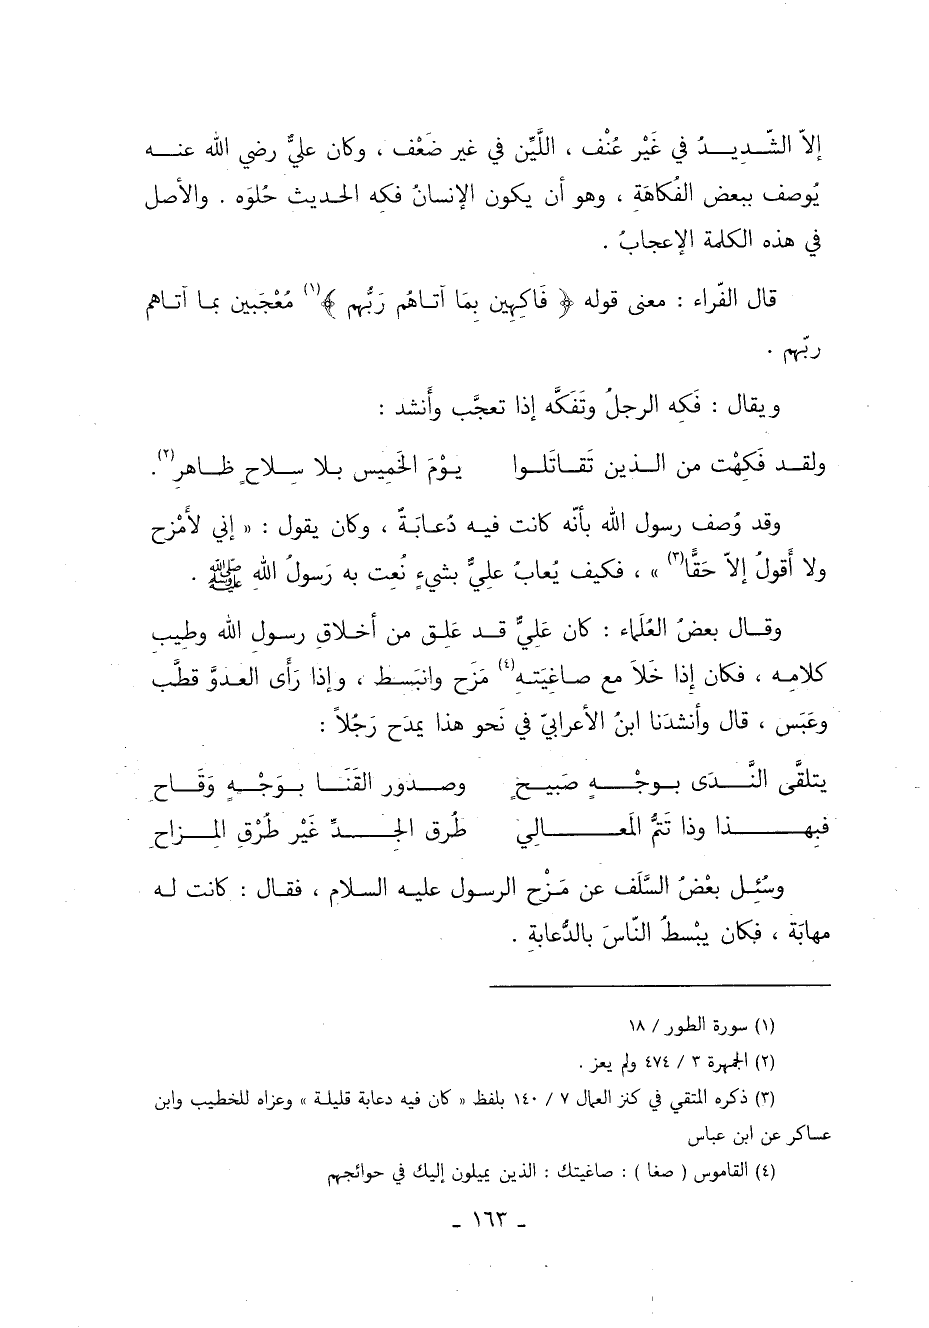 إلاّ الشّديدُ في غَيْر عُنْف ، اللَّيِّن في غير ضَعْف ، وكان عليٌّ رضي الله عنه
يُوصف ببعض الفُكاهَةِ ، وهو أن يكون الإنسانُ فكه الحديث حُلوَه . والأصل
في هذه الكلمة الإعجابُ .
قال الفّراء : معنى قوله ﴿ فَاكِهِين بِمَا آتاهُم رَبُّهم ﴾(١) مُعْجَبين بما آتاهم
ربّهم .
ويقال : فَكه الرجلُ وتَفَكَّه إذا تعجَّب وأَنشد :
ولقد فَكِهْت من الذين تَقاتَلوا يوْمَ الخَمِيس بلا سِلاحٍ ظاهر(٢).
وقد وُصف رسول الله بأنّه كانت فيه دُعابَةٌ ، وكان يقول : « إني لأَمْزح
ولا أَقولُ إلاّ حَقًّا(٣) » ، فكيف يُعابُ علِيٌّ بشيءٍ نُعت به رَسولُ اللهِ ﷺ .
وقال بعضُ العُلَماء : كان عَلِيٌّ قد عَلِق من أخلاقِ رسول الله وطيبِ
كلامه ، فكان إذا خَلاَ مع صاغِيَته(٤) مَزَح وانبَسط ، وإذا رَأى العدوَّ قطَّب
وعَبَس ، قال وأنشدَنا ابنُ الأعرابيّ في نَحو هذا يمدَح رَجُلاً :
يتلقَّى النَّدَى بوجْهٍ صَبيحٍ وصدور القَنَا بوَجْهٍ وَقَاحِ
فبهذا وذا تَتمُّ المَعالِي طُرق الجدِّ غَيْر طُرْقِ المزاحِ
وسُئِل بعْضُ السَّلَف عن مَزْح الرسول عليه السلام ، فقال : كانت له
مهابَة ، فكان يبْسطُ النّاسَ بالدُّعابةِ .
(١) سورة الطور / ١٨
(٢) الجمهرة ٣ / ٤٧٤ ولم يعز .
(٣) ذكره المتقي في كنز العمال ٧ / ١٤٠ بلفظ « كان فيه دعابة قليلة » وعزاه للخطيب وابن
عساكر عن ابن عباس
(٤) القاموس ( صغا ) : صاغيتك : الذين يميلون إليك في حوائجهم
- ١٦٣ -